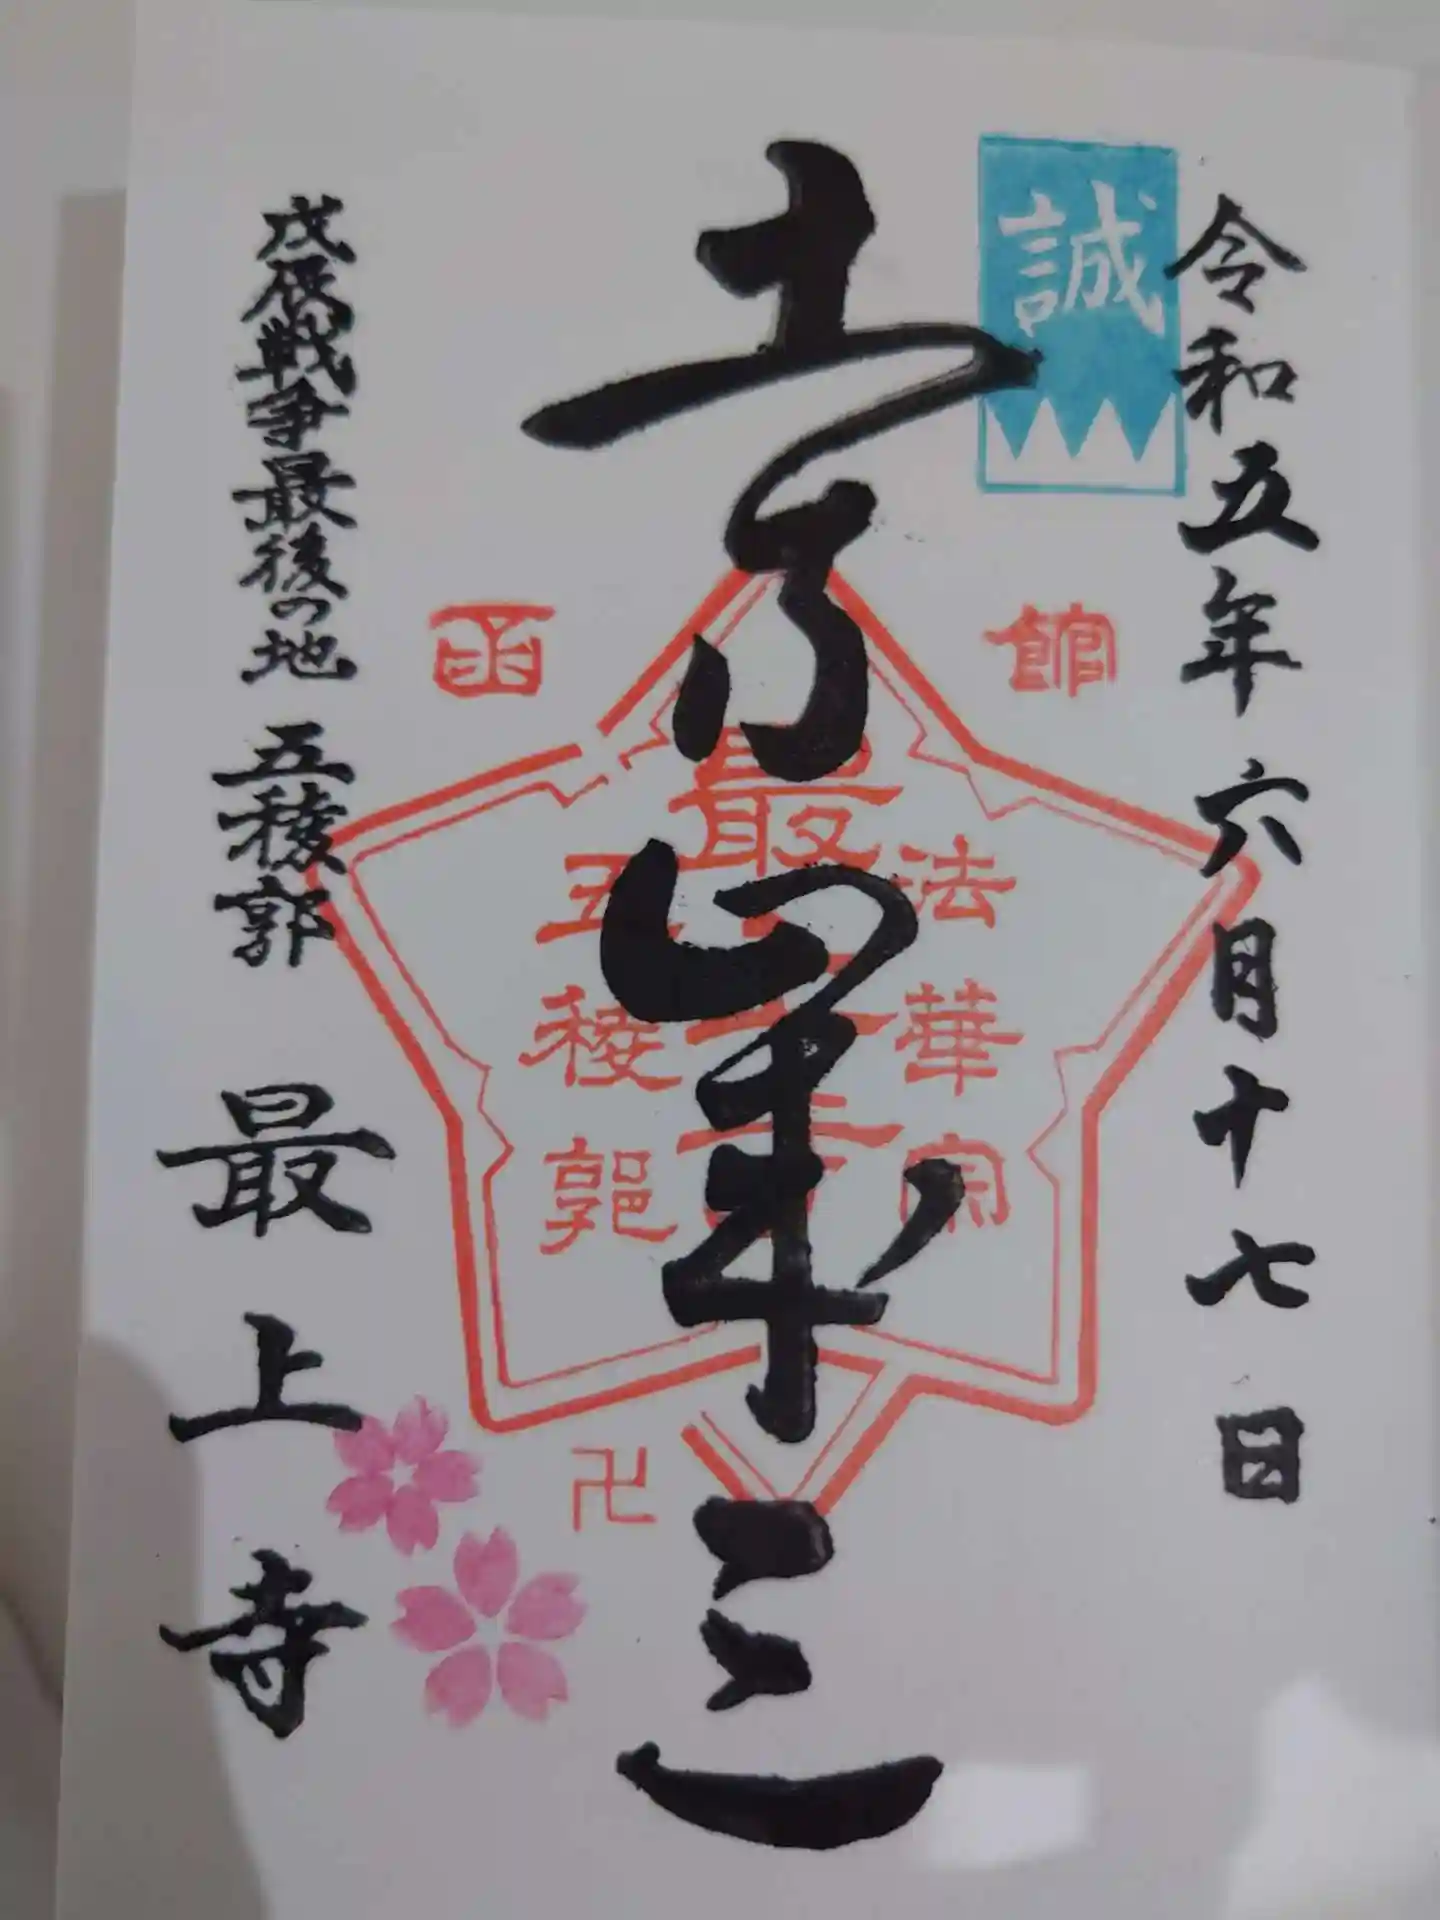 令和五年 六月十七日
誠
土方歳三
函館
法華宗
最上寺
五稜郭
卍
戊辰戦争最後の地 五稜郭 最上寺